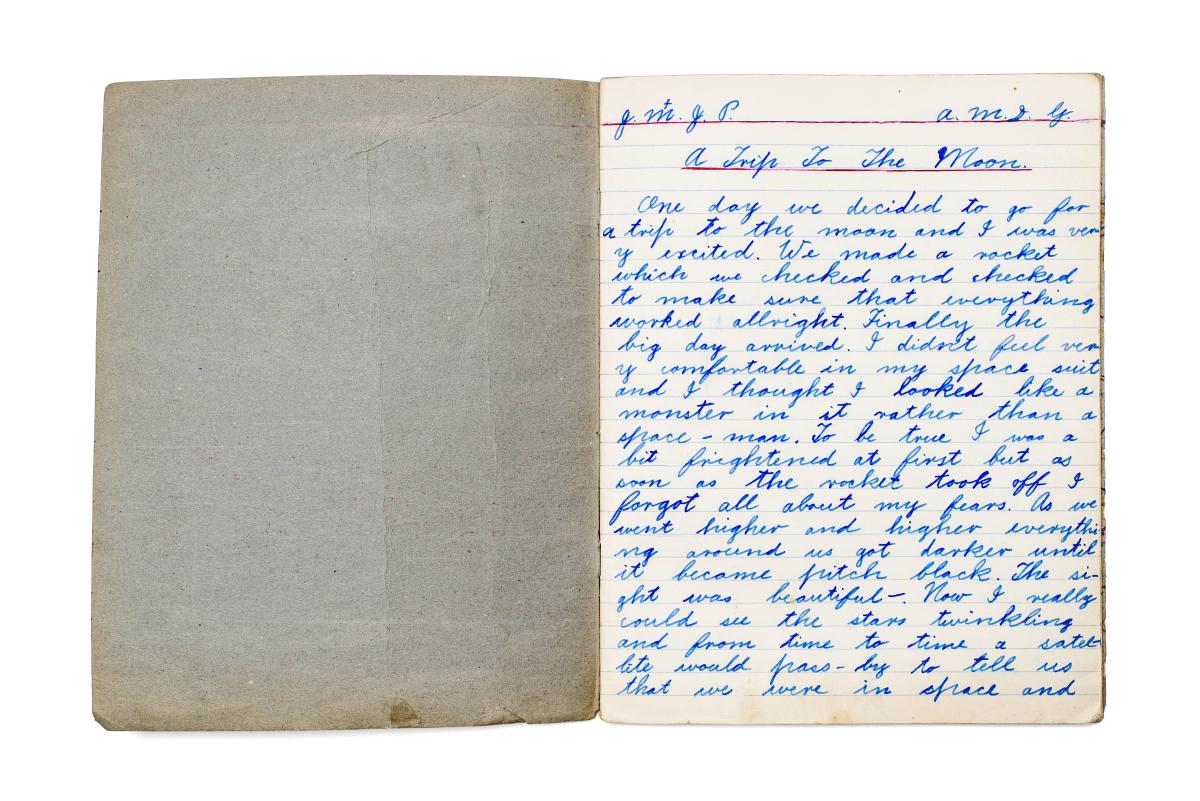 J. M. J. P. A. M. D. G.
A Trip To The Moon.
One day we decided to go for
a trip to the moon and I was ver-
y excited. We made a rocket
which we checked and checked
to make sure that everything
worked allright. Finally the
big day arrived. I didn't feel ver-
y comfortable in my space suit
and I thought I looked like a
monster in it rather than a
space-man. To be true I was a
bit frightened at first but as
soon as the rocket took off I
forgot all about my fears. As we
went higher and higher everythi-
ng around us got darker until
it became pitch black. The si-
ght was beautiful-. Now I really
could see the stars twinkling
and from time to time a satel-
lite would pass-by to tell us
that we were in space and